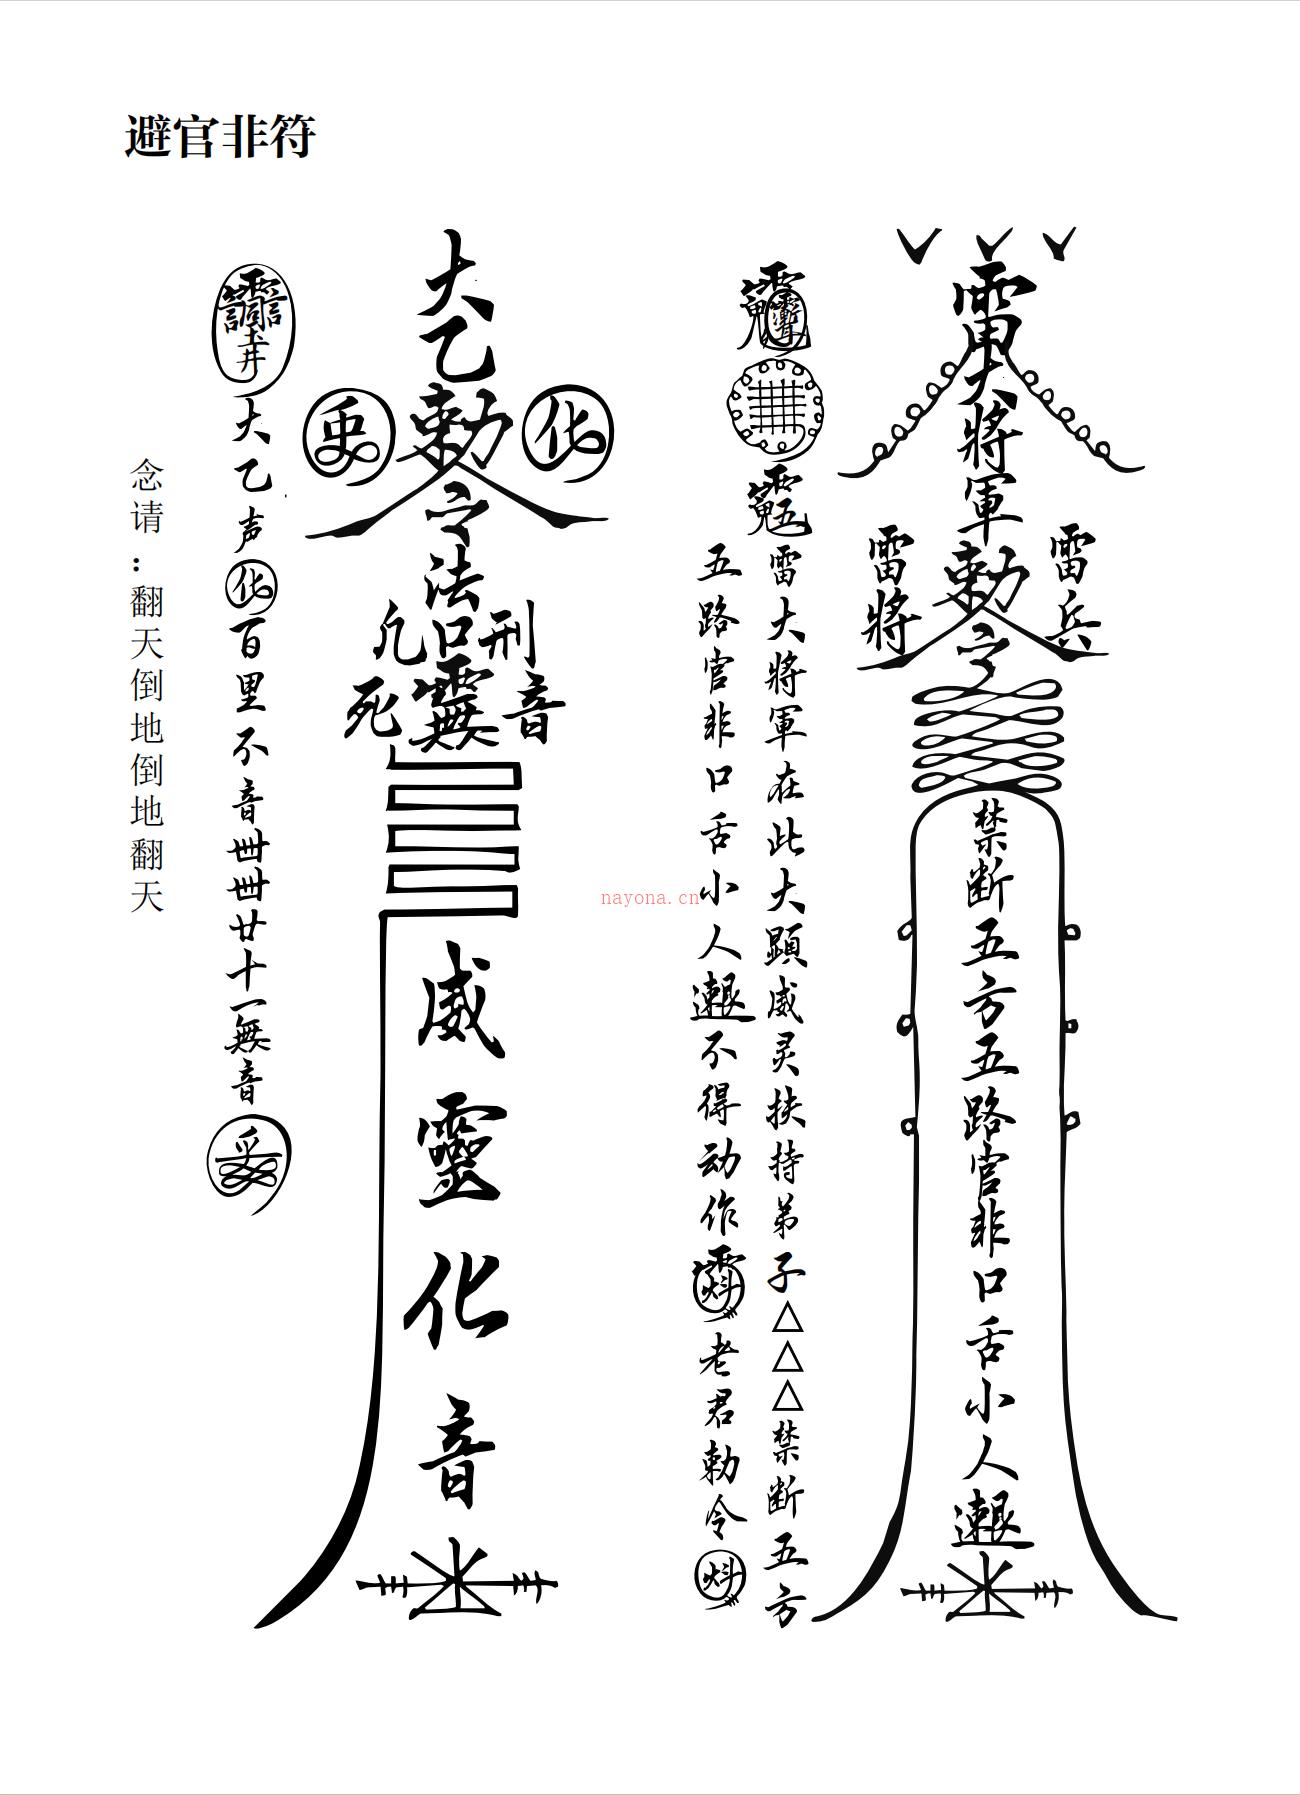 避官非符
雷大將軍勅令
雷將
雷兵
禁断五方五路官非口舌小人
雷大將軍在此大顯威灵扶持弟子△△△禁断五方
五路官非口舌小人
不得动作
老君勅令
大乙勅令法
化
口
刑
死
音
威靈化音
大乙声
化
百里不音卌卌廿十一無音
念请：翻天倒地倒地翻天
nayona.cn